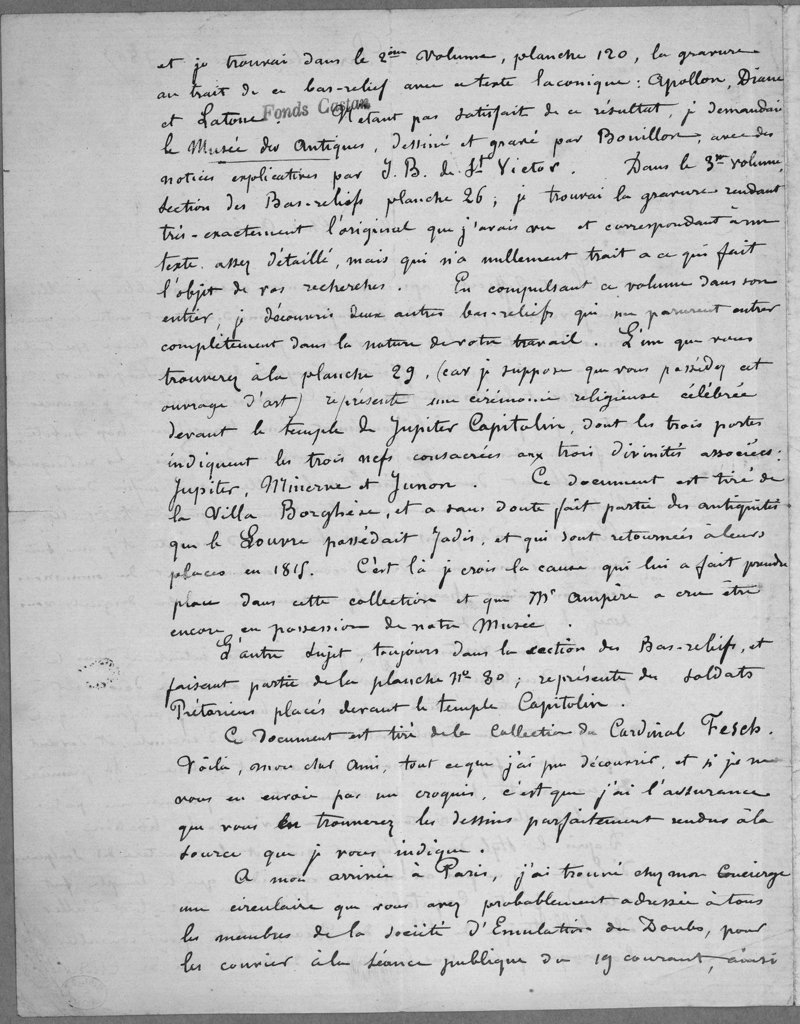 et je trouvai dans le 2ème volume, planche 120, la gravure
au trait de ce bas-relief avec ce texte laconique : Apollon, Diane
et Latone. N'étant pas satisfait de ce résultat, je demandai
Fonds Castan
le Musée des Antiques, dessiné et gravé par Bouillon, avec des
notices explicatives par J. B. de St Victor. Dans le 3me volume,
section des Bas-reliefs planche 26 ; je trouvai la gravure rendant
très-exactement l'original que j'avais vu et correspondant à un
texte assez détaillé, mais qui n'a nullement trait a ce qui fait
l'objet de vos recherches. En compulsant ce volume dans son
entier, je découvris deux autres bas-reliefs qui me parurent entrer
complètement dans la nature de votre travail. L'un que vous
trouverez à la planche 29, (car je suppose que vous possédez cet
ouvrage d'art) représente une cérémonie religieuse célébrée
devant le temple de Jupiter Capitolin, dont les trois portes
indiquent les trois nefs consacrées aux trois divinités associées :
Jupiter, Minerve et Junon. Ce document est tiré de
la Villa Borghèse, et a sans doute fait partie des antiquités
que le Louvre possédait Jadis, et qui sont retournées à leurs
places en 1815. C'est là je crois la cause qui lui a fait prendre
place dans cette collection et que Mr Ampère a cru être
encore en possession de notre Musée.
L'autre sujet, toujours dans la section des Bas-reliefs, et
faisant partie de la planche No 80 ; représente des soldats
Prétoriens placés devant le temple Capitolin.
Ce document est tiré de la Collection du Cardinal Fesch.
Voilà, mon cher Ami, tout ce que j'ai pu découvrir, et si je ne
vous en envoie pas un croquis, c'est que j'ai l'assurance
que vous en trouverez les dessins parfaitement rendus à la
source que je vous indique.
A mon arrivée à Paris, j'ai trouvé chez mon Concierge
une circulaire que vous avez probablement adressée à tous
les membres de la société d'Emulation du Doubs, pour
les convier à la séance publique du 19 courant, ainsi